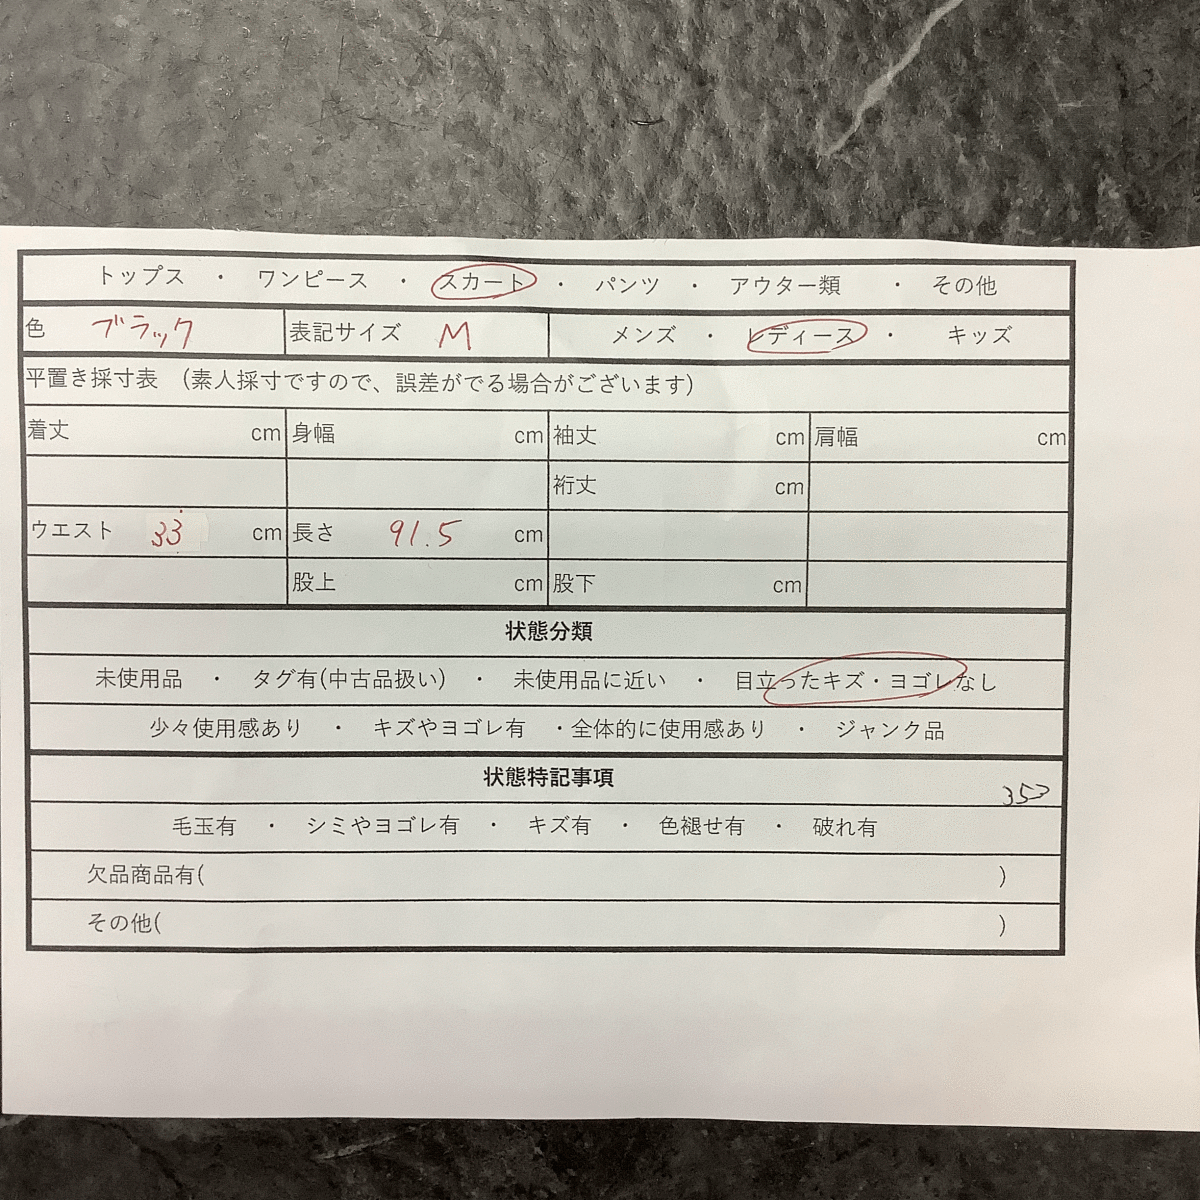 トップス ・ ワンピース ・ スカート ・ パンツ ・ アウター類 ・ その他
色 ブラック 表記サイズ M メンズ ・ レディース ・ キッズ
平置き採寸表 (素人採寸ですので、誤差がでる場合がございます)
着丈 cm 身幅 cm 袖丈 cm 肩幅 cm
裄丈 cm
ウエスト 33 cm 長さ 91.5 cm
股上 cm 股下 cm
状態分類
未使用品 ・ タグ有(中古品扱い) ・ 未使用品に近い ・ 目立ったキズ・ヨゴレなし
少々使用感あり ・ キズやヨゴレ有 ・全体的に使用感あり ・ ジャンク品
状態特記事項
353
毛玉有 ・ シミやヨゴレ有 ・ キズ有 ・ 色褪せ有 ・ 破れ有
欠品商品有( )
その他( )